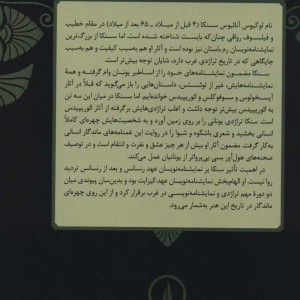 نام لوکیوس آنائیوس سنکا (۴ قبل از میلاد ـ ۶۵ بعد از میلاد) در مقام خطیب
و فیلسوف رواقی چنان که بایست شناخته شده است. اما سنکا بزرگ‌ترین
نمایشنامه‌نویسان رم باستان نیز بوده است و آثار او هم به‌سبب کیفیت و هم به‌سبب
جایگاهی که در تاریخ تراژدی غرب دارد، شایان توجه بیش‌تر است.
سنکا مضمون نمایشنامه‌های خود را از اساطیر یونان وام گرفته و همهٔ
نمایشنامه‌هایش، غیر از توئستس، داستان‌هایی را بازمی‌گوید که قبلاً در آثار
آیسخولوس و سوفوکلس و ائوریپیدس خوانده‌ایم. اما سنکا در میان این سه تن
به ائوریپیدس بیش‌تر توجه داشت و اغلب تراژدی‌هایش برگرفته از آثار ائوریپیدس
است. سنکا تراژدی یونانی را بر روی زمین آورد و به شخصیت‌هایش چهره‌ای کاملاً
انسانی بخشید و شعری باشکوه و شیوا را در روایت این غمنامه‌های ماندگار انسانی
به‌کار گرفت. مضمون آثار او بیش از هر چیز عشق و نفرت و انتقام است و در توصیف
صحنه‌های هول‌آور بسی بی‌پرواتر از یونانیان عمل می‌کند.
در اهمیت تأثیر سنکا بر نمایشنامه‌نویسان عهد رنسانس و بعد از رنسانس تردید
روا نیست. او الهام‌بخش نمایشنامه‌نویسان عهد الیزابت بود و بدین‌سان پیوندی میان
دو دورهٔ مهم تراژدی و نمایشنامه‌نویسی در غرب برقرار کرد و از این روی چهره‌ای
ماندگار در تاریخ این هنر به‌شمار می‌رود.